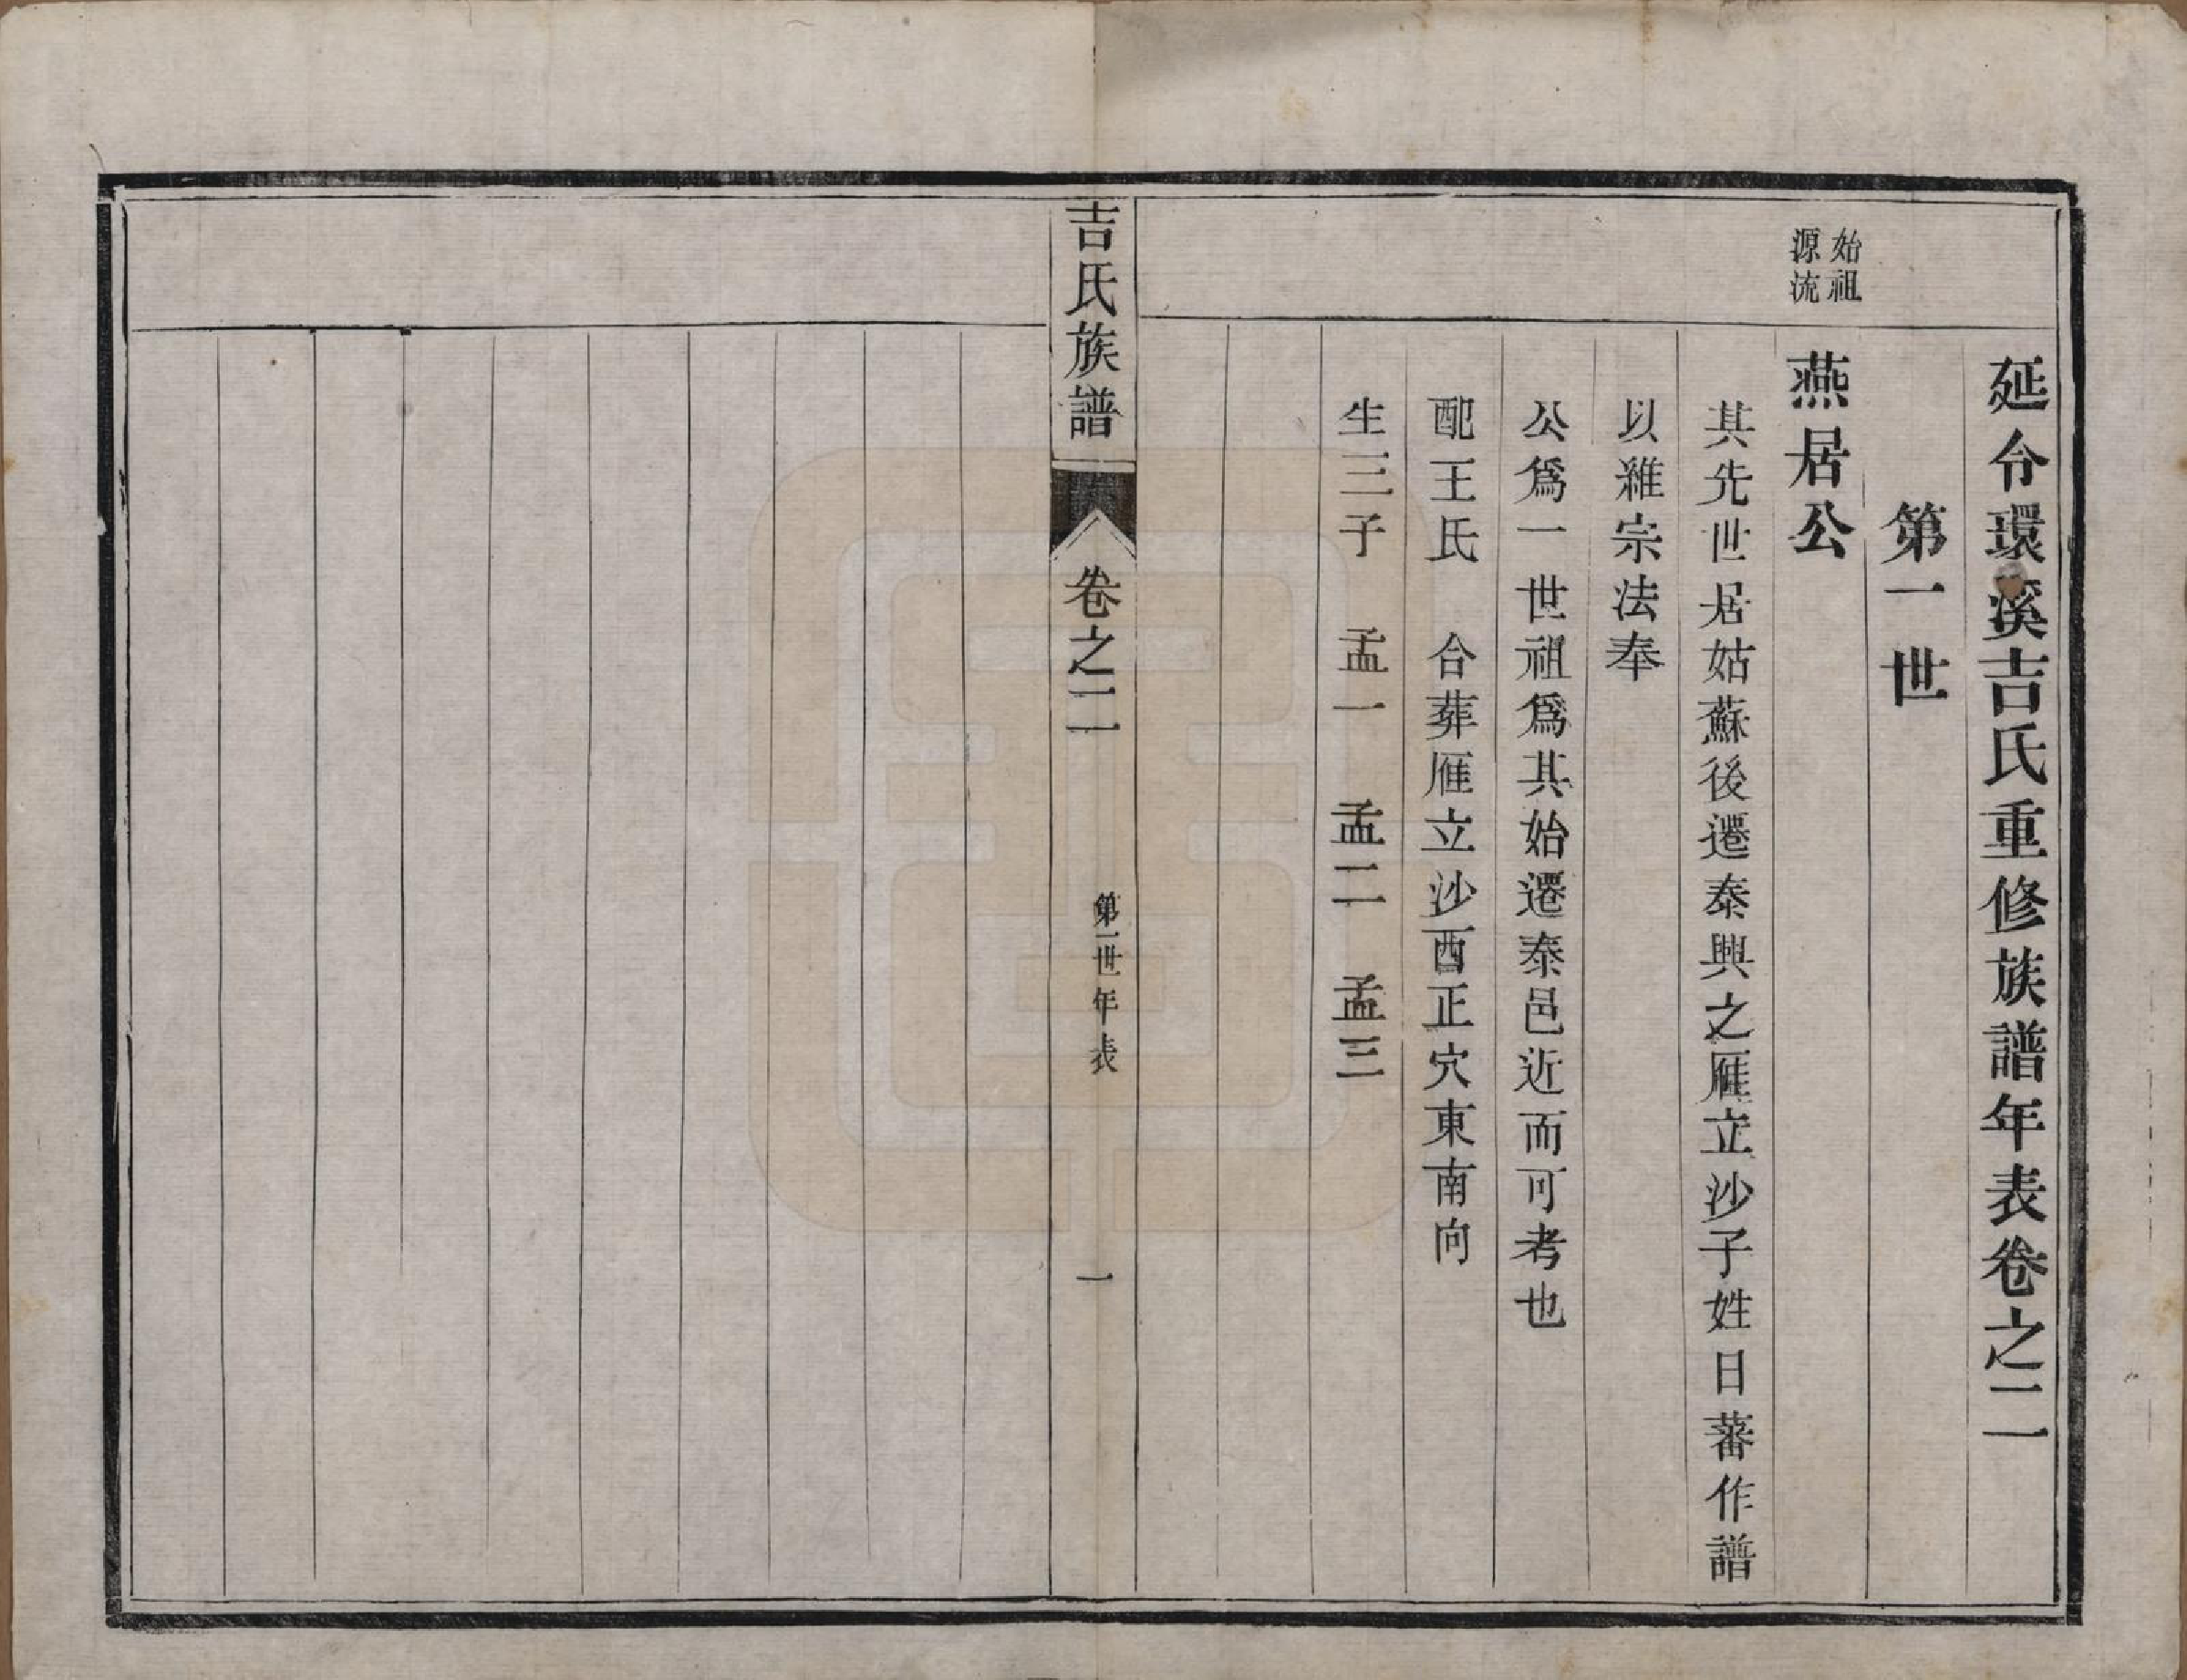 延令環溪吉氏重修族譜年表卷之二
第一世
始祖
源流
燕居公
其先世居姑蘇後遷泰興之雁立沙子姓日蕃作譜
以維宗法奉
公爲一世祖爲其始遷泰邑近而可考也
配王氏　合葬雁立沙酉正穴東南向
生三子　孟一　孟二　孟三
吉氏族譜
卷之二
第一世年表
一